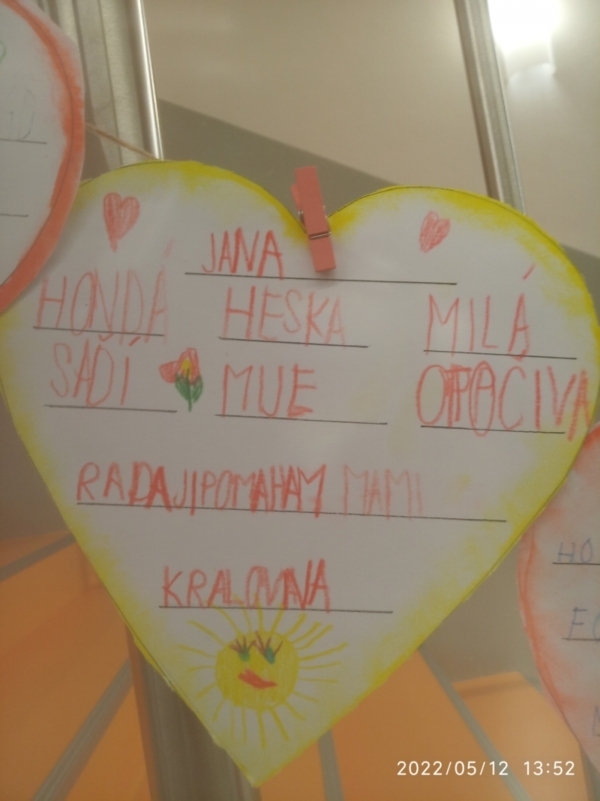 JANA
HONDÁ HESKÁ MILÁ
SADÍ MUE
RADAJIPOMAHAM MAMI
KRALOVNA
HO
2022/05/12 13:52